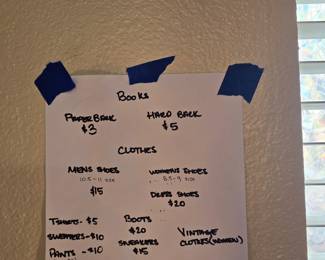 Books
PaperBack
HardBack
$3
$5
Clothes
Mens Shoes
Womens Shoes
10.5-11 size
$15
Dress Shoes
$20
T-shirts - $5
Boots
$20
Vintage
Clothes (Women)
Sweaters - $10
Sneakers
$15
Pants - $10